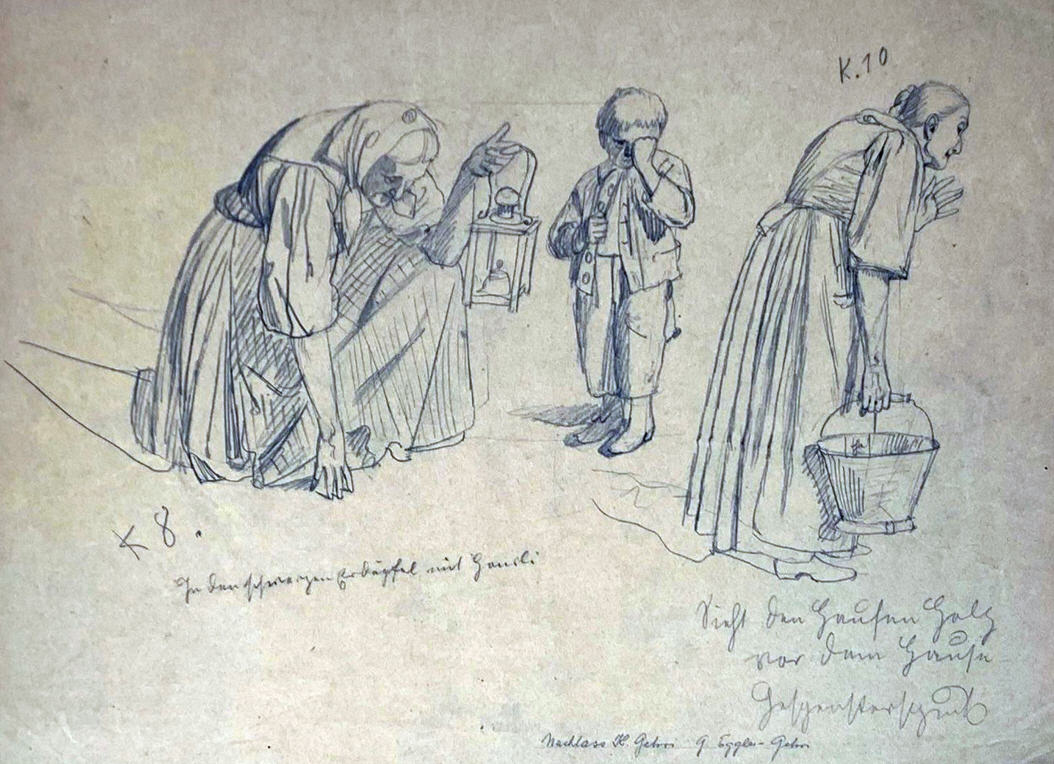 K.10
K 8.
In den schwarzen Erdäpfel mit Hansli
Sieht den Haufen Holz
vor dem Hause
Gespensterspuk
Nachlass K. Gehri G Eggler-Gehri